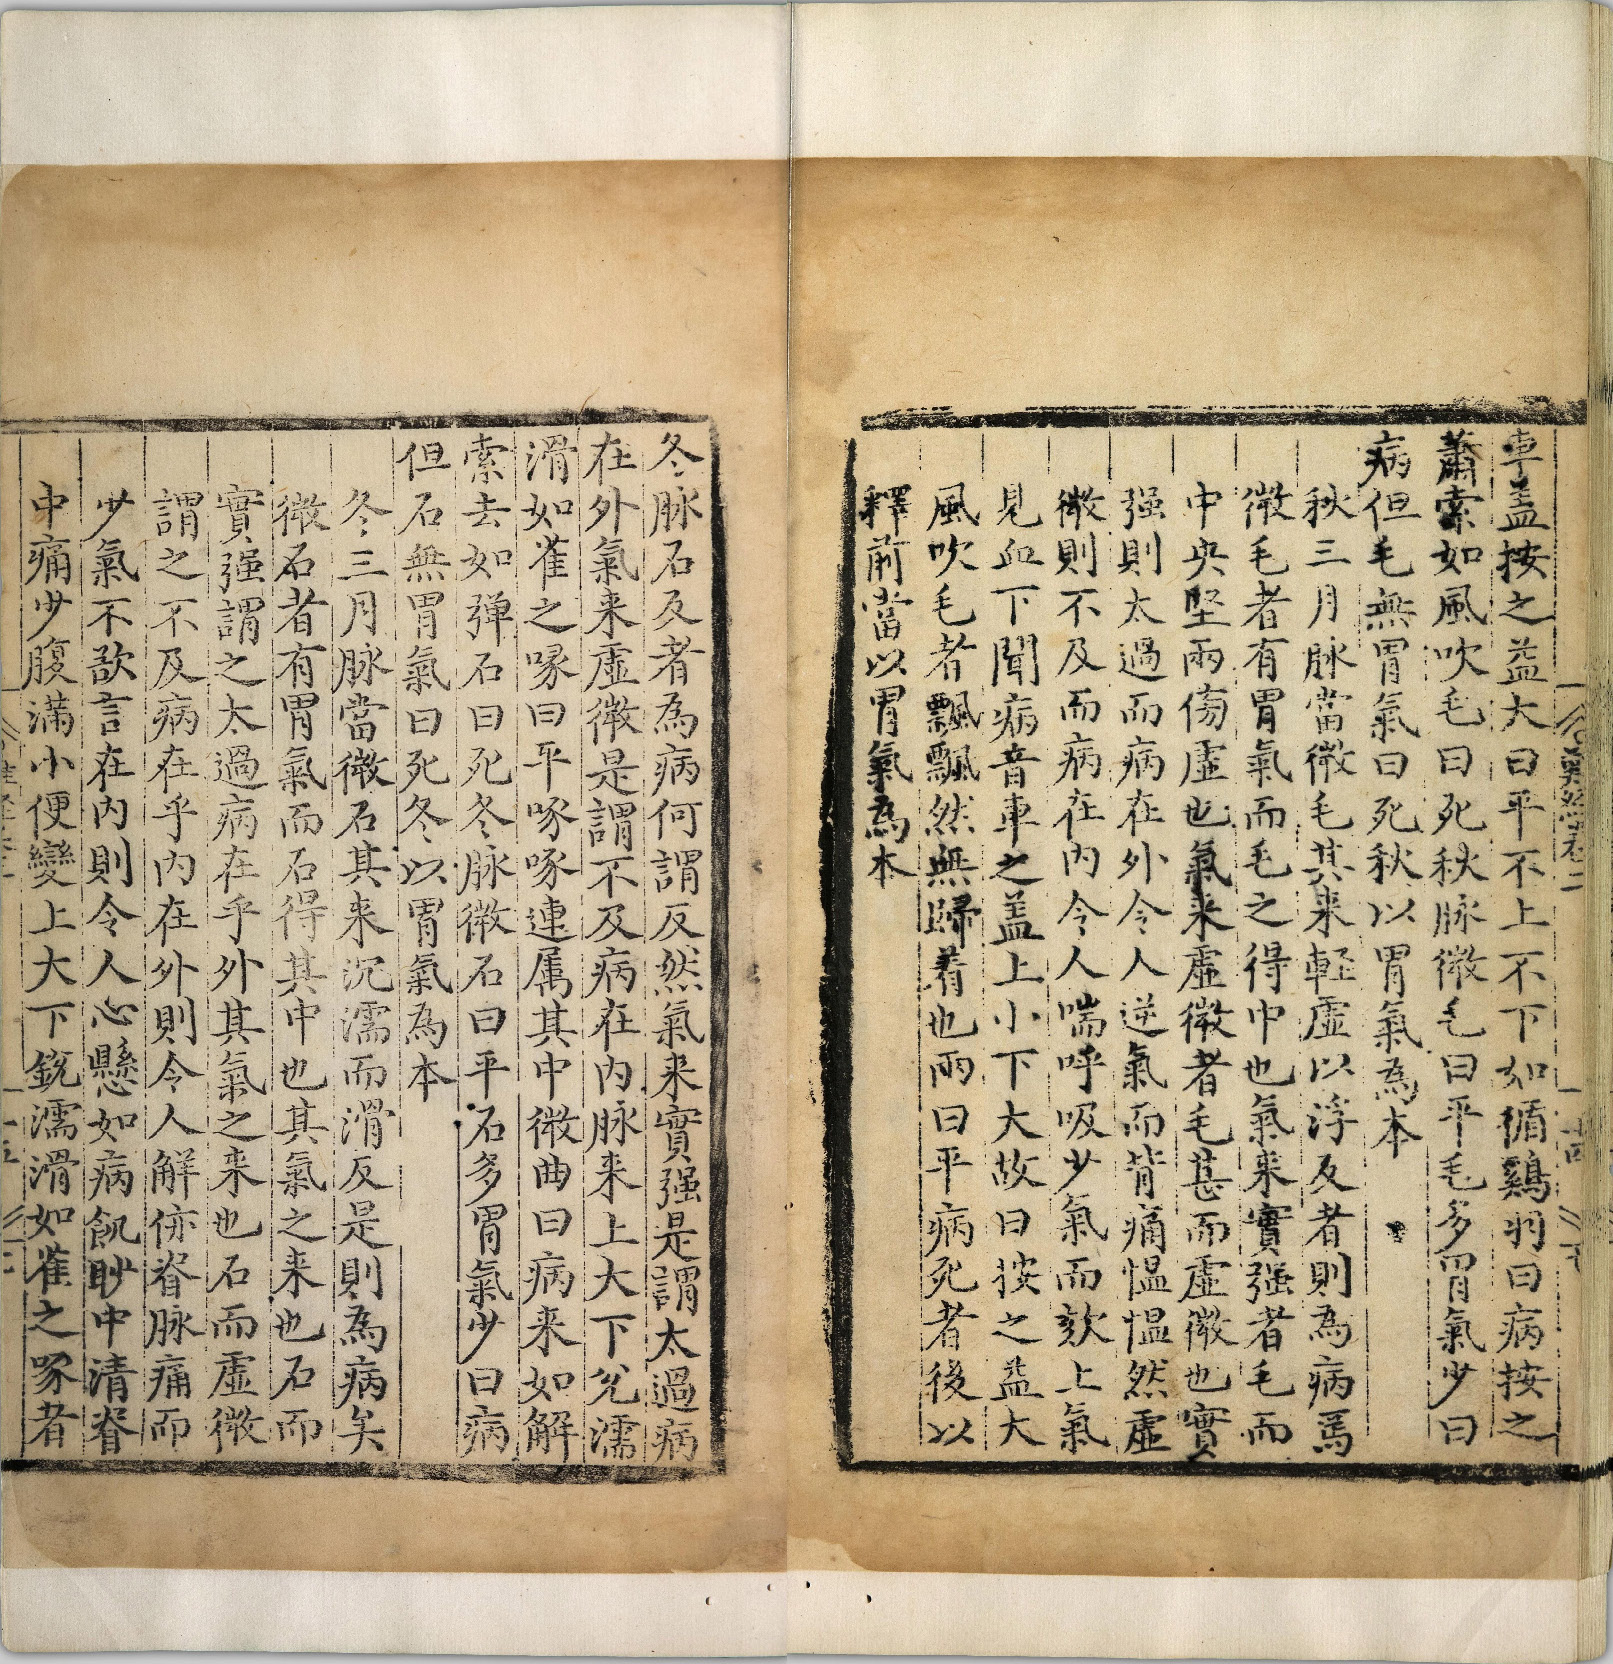 車盖按之益大曰平不上不下如循鷄羽曰病按之
蕭索如風吹毛曰死秋脉微毛曰平毛多胃氣少曰
病但毛無胃氣曰死秋以胃氣為本
秋三月脉當微毛其来軽虚以浮反者則為病焉
微毛者有胃氣而毛之得中也氣来實强者毛而
中央堅兩傍虚也氣来虚微者毛甚而虚微也實
强則太過而病在外令人逆氣而背痛愠愠然虚
微則不及而病在内令人喘呼吸少氣而欬上氣
見血下聞病音車之盖上小下大故曰按之益大
風吹毛者飄飄然無歸着也兩曰平病死者後以
釋前當以胃氣為本
冬脉石反者為病何謂反然氣来實强是謂太過病
在外氣来虚微是謂不及病在内脉来上大下兊濡
滑如雀之喙曰平啄啄連属其中微曲曰病来如解
索去如弾石曰死冬脉微石曰平石多胃氣少曰病
但石無胃氣曰死冬以胃氣為本
冬三月脉當微石其来沉濡而滑反是則為病矣
微石者有胃氣而石得其中也其氣之来也石而
實强謂之太過病在乎外其氣之来也石而虚微
謂之不及病在乎内在外則令人解㑊脊脉痛而
少氣不欲言在内則令人心懸如病飢䏚中清脊
中痛少腹滿小便變上大下銳濡滑如雀之啄者